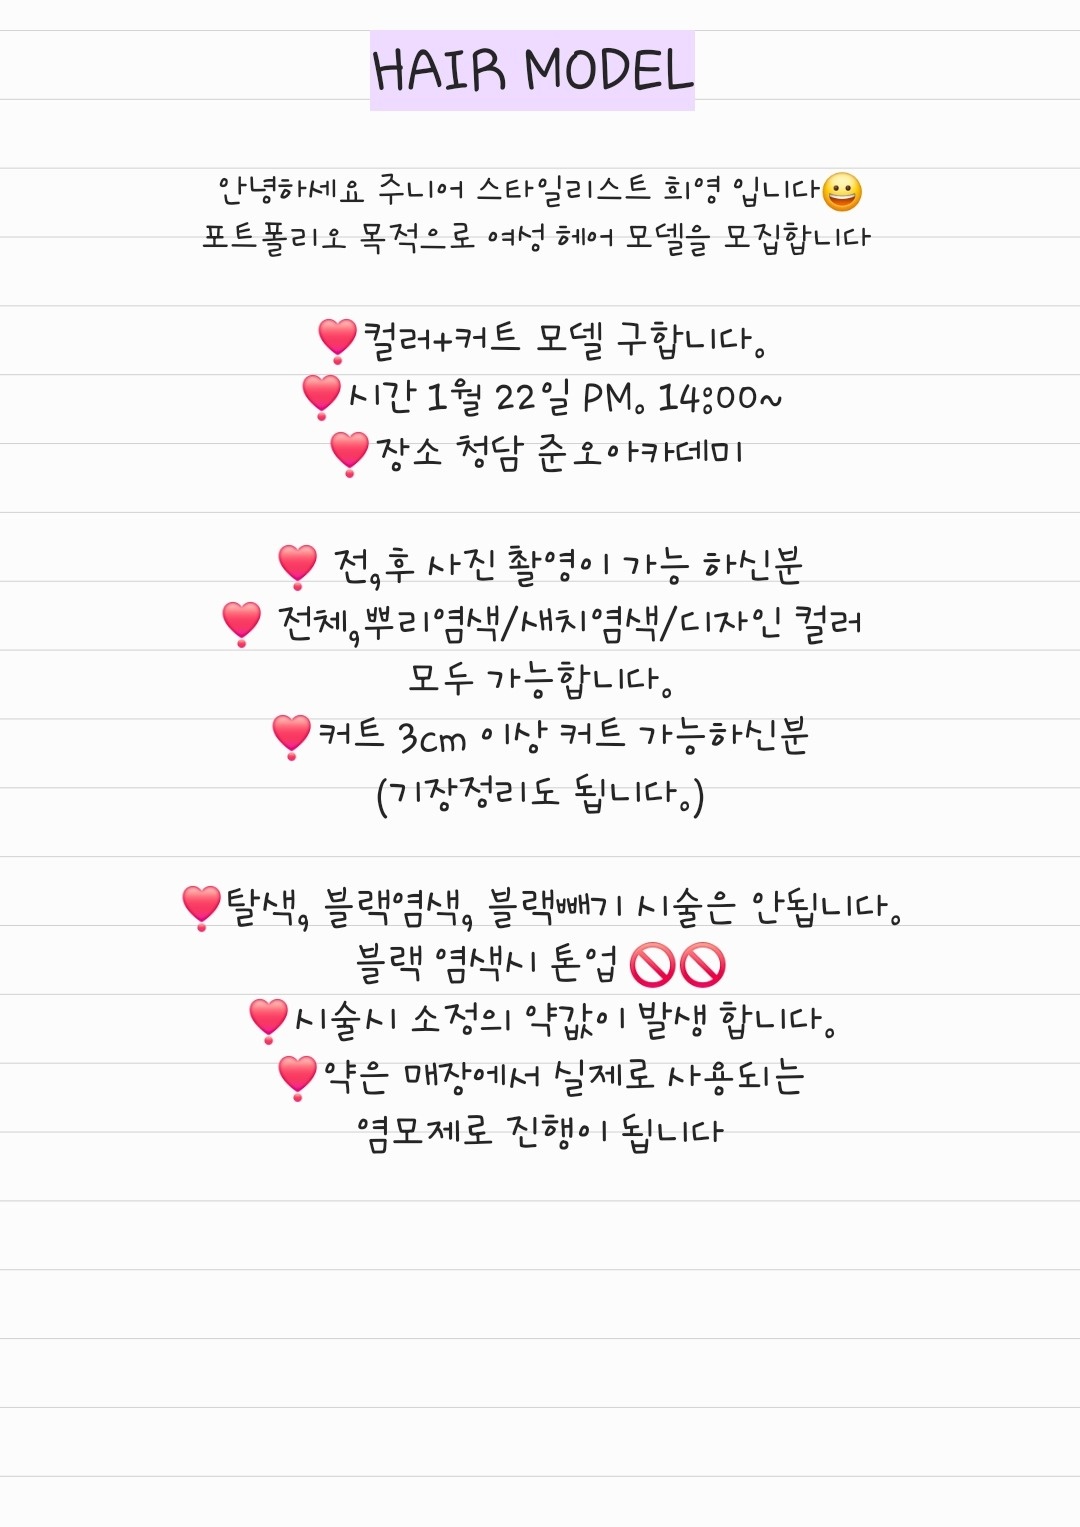 HAIR MODEL
안녕하세요 주니어 스타일리스트 희영 입니다😀
포트폴리오 목적으로 여성 헤어 모델을 모집합니다
❣️컬러+커트 모델 구합니다.
❣️시간 1월 22일 PM. 14:00~
❣️장소 청담 준오아카데미
❣️ 전,후 사진 촬영이 가능 하신분
❣️ 전체,뿌리염색/새치염색/디자인 컬러
모두 가능합니다.
❣️커트 3cm 이상 커트 가능하신분
(기장정리도 됩니다.)
❣️탈색, 블랙염색, 블랙빼기 시술은 안됩니다.
블랙 염색시 톤업 🚫🚫
❣️시술시 소정의 약값이 발생 합니다.
❣️약은 매장에서 실제로 사용되는
염모제로 진행이 됩니다